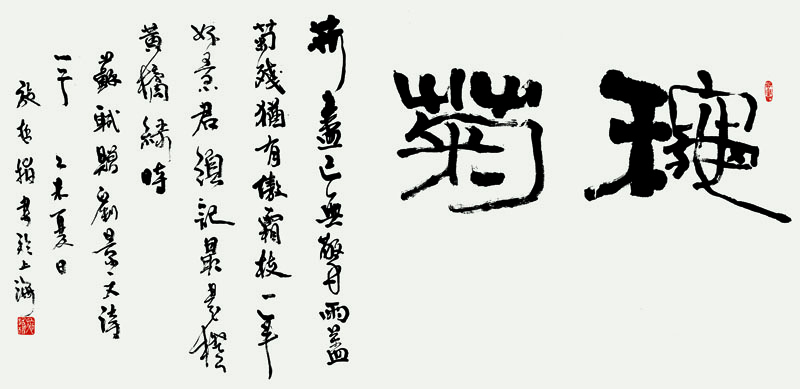 菊
荷盡已無擎雨蓋
菊殘猶有傲霜枝一年
好景君須記最是橙
黃橘綠時
蘇軾贈劉景文詩
一首 乙未夏日
書於上海